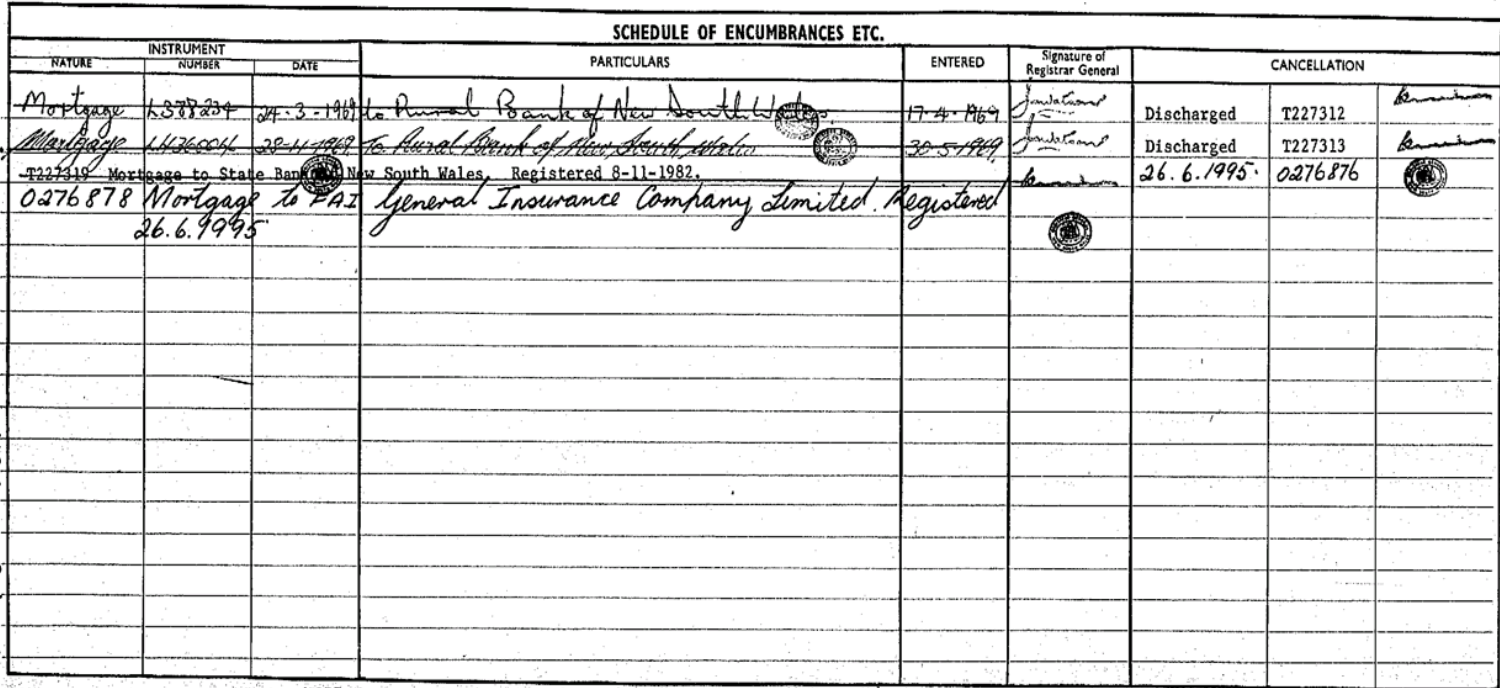 SCHEDULE OF ENCUMBRANCES ETC.
INSTRUMENT
NATURE NUMBER DATE PARTICULARS ENTERED Signature of Registrar General CANCELLATION
Mortgage L388234 24-3-1969 to Rural Bank of New South Wales 17-4-1969 Discharged T227312
Mortgage 1969 To Rural Bank of New South Wales 30-5-1969 Discharged T227313
T227319 Mortgage to State Bank New South Wales. Registered 8-11-1982. 26.6.1995. 0276876
0276878 Mortgage to FAI General Insurance Company Limited. Registered
26.6.1995